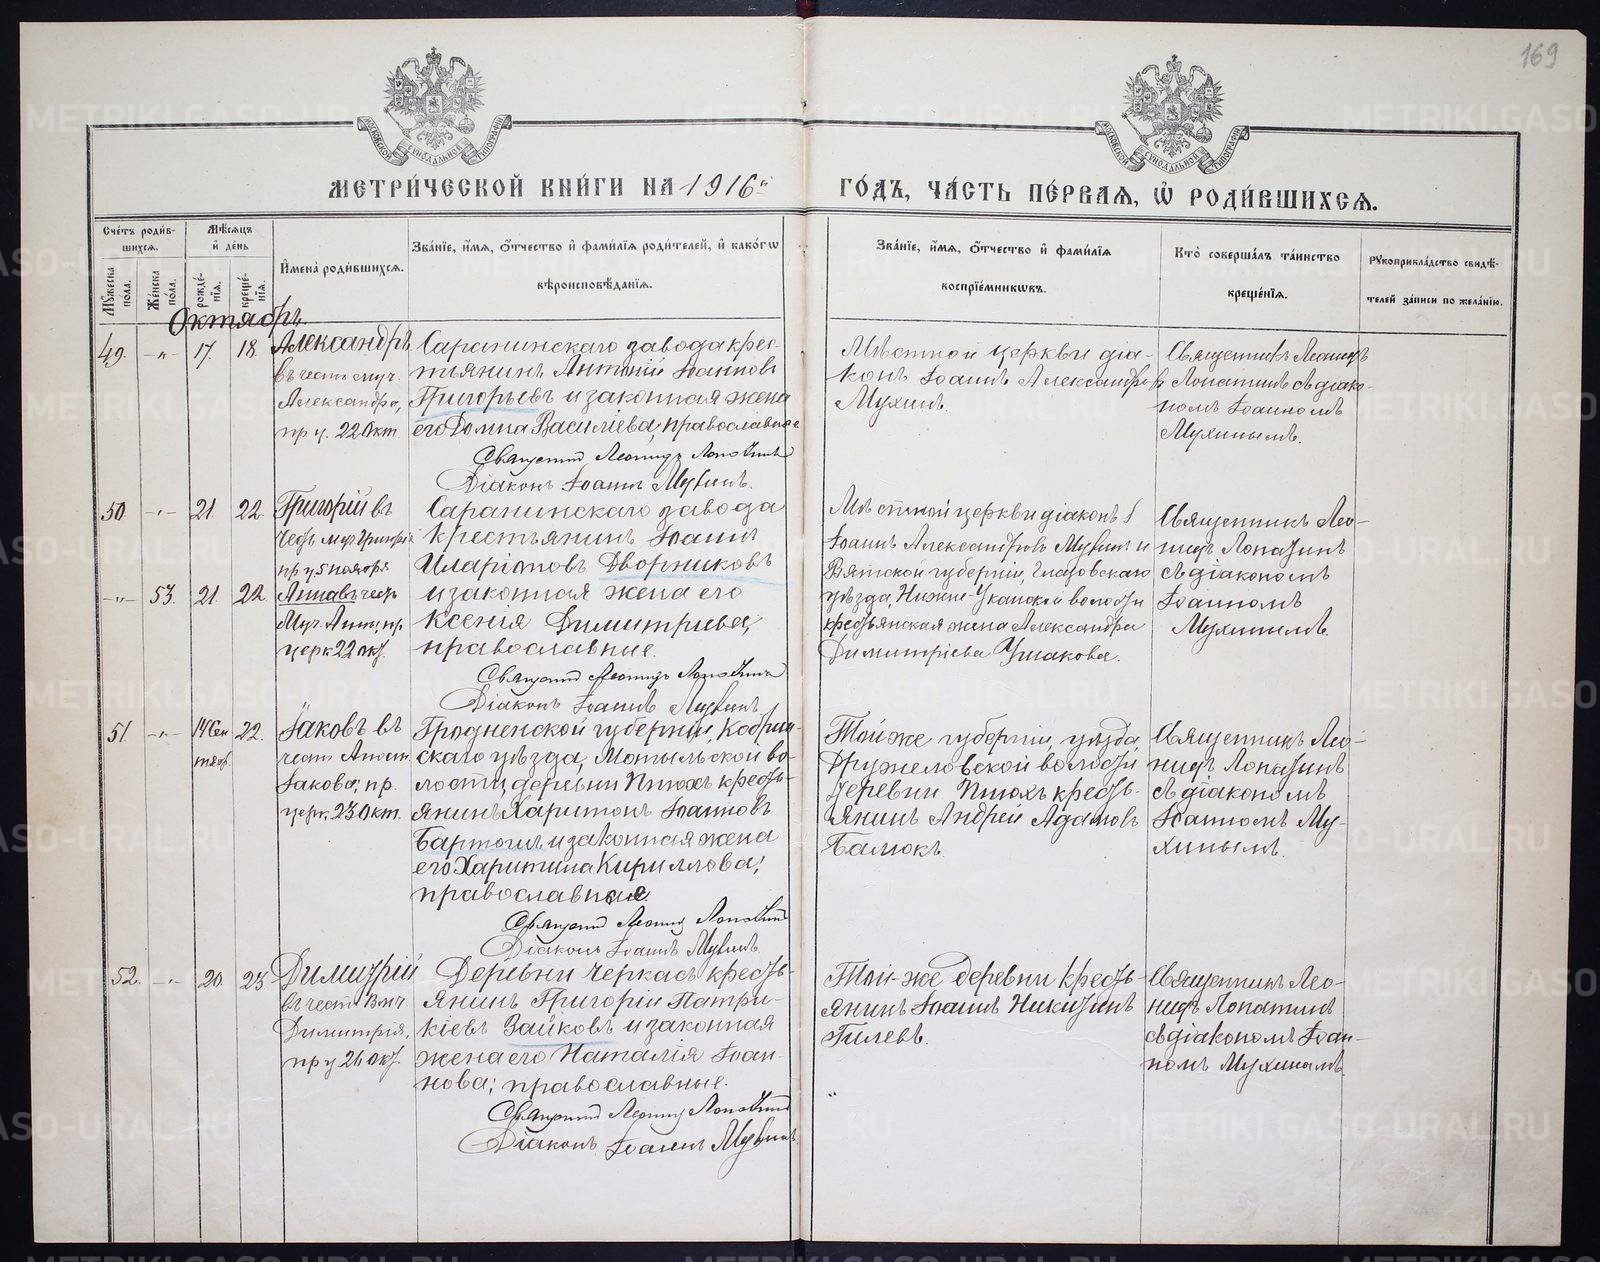 169
МОСКОВСКОЙ СѴНОДАЛЬНОЙ ТИПОГРАФІИ
МОСКОВСКОЙ СѴНОДАЛЬНОЙ ТИПОГРАФІИ
МЕТРИ́ЧЕСКОЙ КНИ́ГИ НА 1916й
ГО́ДЪ, ЧА́СТЬ ПЕ́РВАѦ, Ѡ҆ РОДИ́ВШИХСѦ.
Сче́тъ роди́вшихсѧ.
Мꙋ́жеска по́ла.
Же́нска по́ла.
Мѣ́сѧцъ и҆ де́нь
рожде́нїѧ.
креще́нїѧ.
И҆мена̀ роди́вшихсѧ.
Зва́нїе, и҆́мѧ, ѻ҆́тчество и҆ фами́лїѧ роди́телей, и҆ како́гѡ
вѣроисповѣ́данїѧ.
Зва́нїе, и҆́мѧ, ѻ҆́тчество и҆ фами́лїѧ
воспрїе́мникѡвъ.
Кто̀ соверша́лъ та́инство
креще́нїѧ.
Рꙋкоприкла́дство свидѣ́-
телей за́писи по жела́нїю.
Октябрь.
49. -„- 17. 18.
Александръ
въ честь муч.
Александра,
пр. ц. 22 Окт.
Саранинскаго завода крес-
тьянинъ Антоній Іоанновъ
Григорьевъ и законная жена
его Домна Василіева, православные
Священник Леонидъ Лопатинъ
Діаконъ Іоаннъ Мухинъ.
Мѣстной церкви діа-
конъ Іоаннъ Александров
Мухинъ.
Священникъ Леонидъ
Лопатинъ съ діако-
номъ Іоанномъ
Мухинымъ.
50 -„- 21. 22.
Григорій въ
честь муч. Григорія
пр. ц 5 ноября
-„- 53. 21. 22.
Анна въ честь
Муч. Анны, пр.
церк 22 окт.
Саранинскаго завода
крестьянинъ Іоаннъ
Иларіоновъ Дворниковъ
и законная жена его
Ксенія Димитріева,
православные.
Священник Леонидъ Лопатинъ
Діаконъ Іоаннъ Мухинъ
Мѣстной церкви діаконъ
Іоаннъ Александровъ Мухинъ и
Вятской губерніи, Глазовскаго
уѣзда, Нижне-Уканской волости
крестьянская жена Александра
Димитріева Ушакова.
Священникъ Лео-
нидъ Лопатинъ
съ діакономъ
Іоанномъ
Мухинымъ.
51 -„- 14 Сен
тябр. 22.
Іаковъ въ
честь Апост.
Іакова; пр.
церк. 23 Окт.
Гродненской губерніи, Кобрин-
скаго уѣзда, Мотыльской во-
лости, деревни Пнюхъ кресть-
янинъ Харитонъ Іоанновъ
Бартошъ и законная жена
его Харитина Кириллова;
православные.
Священник Леонид Лопатинъ
Діаконъ Іоаннъ Мухинъ
Той же губерніи, уѣзда
Дружеловской волости
деревни Пнюхъ кресть-
янинъ Андрей Адамовъ
Балюкъ.
Священникъ Лео-
нидъ Лопатинъ
съ діакономъ
Іоанномъ Му-
хинымъ.
52. -„- 20. 23
Димитрій
въ честь Влмч.
Димитрія,
пр ц 26 окт.
Деревни Черкасъ кресть-
янинъ Григорій Патри-
кіевъ Зайковъ и законная
жена его Наталія Іоан-
нова; православные.
Священник Леонид Лопатинъ
Діаконъ Іоаннъ Мухинъ
Той-же деревни кресть-
янинъ Іоаннъ Никитинъ
Гилевъ.
Священникъ Лео-
нидъ Лопатинъ
съ діакономъ Іоан-
номъ Мухинымъ
METRIKI.GASO-URAL.RU